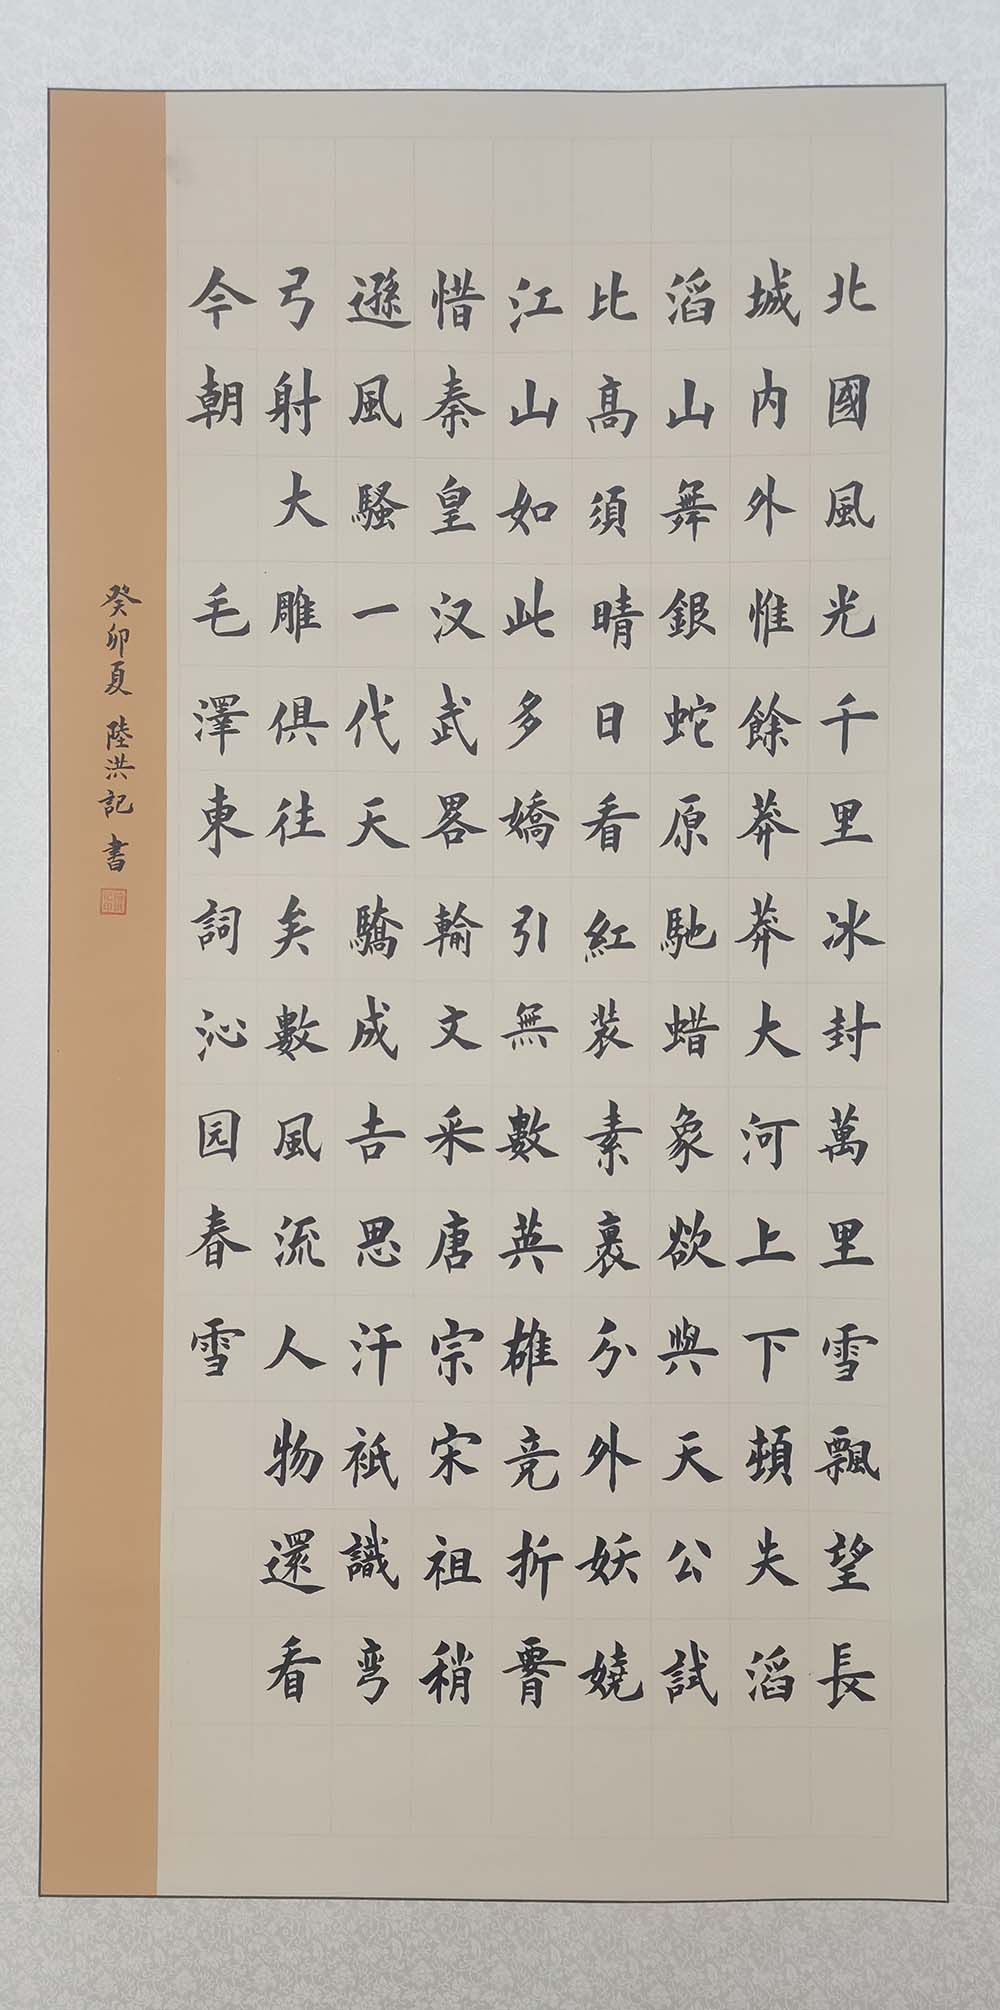 北國風光千里冰封萬里雪飄望長
城内外惟餘莽莽大河上下頓失滔
滔山舞銀蛇原馳蜡象欲與天公試
比高須晴日看紅装素裹分外妖嬈
江山如此多嬌引無數英雄竞折腰
惜秦皇汉武畧輸文采唐宗宋祖稍
遜風騷一代天驕成吉思汗祇識彎
弓射大雕俱往矣數風流人物還看
今朝 毛澤東詞沁园春雪
癸卯夏 陸洪記 書